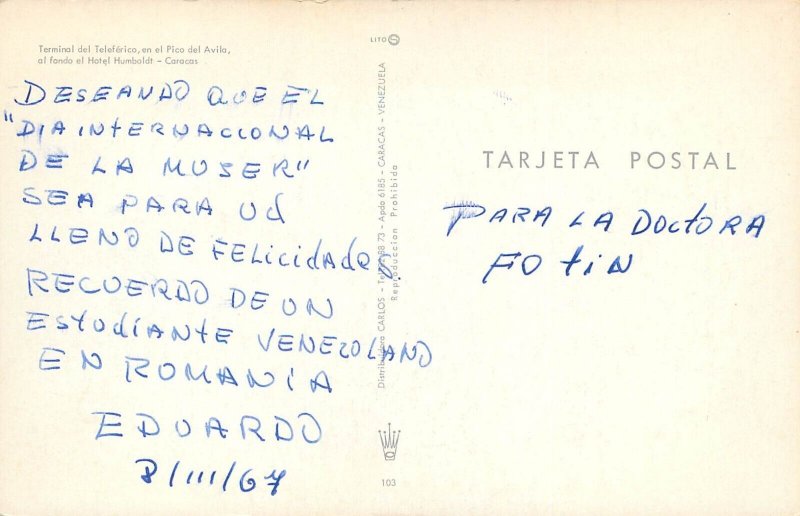 Terminal del Teleférico, en el Pico del Avila,
al fondo el Hotel Humboldt – Caracas
DESEANDO QUE EL
"DIA INTERNACIONAL
DE LA MUJER"
SEA PARA Ud
LLENO DE FELICIDADES.
RECUERDO DE UN
ESTUDIANTE VENEZOLANO
EN ROMANIA
EDUARDO
8/III/67
LITO S
Distribuidora CARLOS - Apdo 6185 - CARACAS - VENEZUELA
Reproduccion Prohibida
103
TARJETA POSTAL
PARA LA DOCTORA
FOTIN